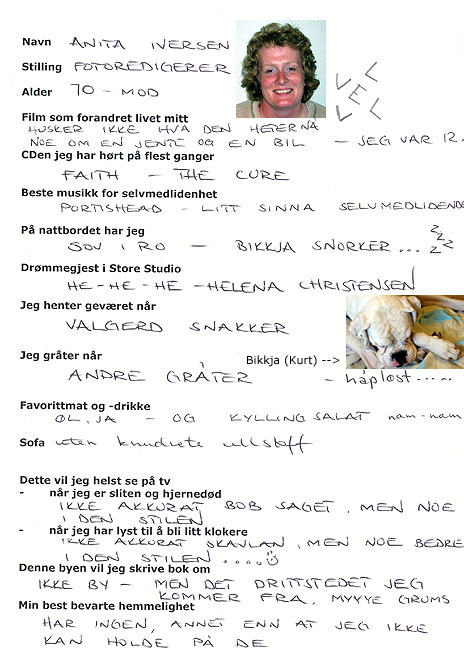 Navn ANITA IVERSEN
Stilling FOTOREDIGERER
Alder 70-MOD
VEL VEL
Film som forandret livet mitt
HUSKER IKKE HVA DEN HETER NÅ
NOE OM EN JENTE OG EN BIL - JEG VAR 12.
CDen jeg har hørt på flest ganger
FAITH - THE CURE
Beste musikk for selvmedlidenhet
PORTISHEAD - LITT SINNA SELVMEDLIDENDE
På nattbordet har jeg
SOV I RO - BIKKJA SNORKER... ZZZ
Drømmegjest i Store Studio
HE-HE-HE-HELENA CHRISTENSEN
Jeg henter geværet når
VALGERD SNAKKER
Jeg gråter når
Bikkja (Kurt) -->
ANDRE GRÅTER - håpløst.....
Favorittmat og -drikke
ØL, JA - OG KYLLINGSALAT nam-nam
Sofa uten knudrete ullstoff
Dette vil jeg helst se på tv
- når jeg er sliten og hjernedød
IKKE AKKURAT BOB SAGET, MEN NOE
I DEN STILEN
- når jeg har lyst til å bli litt klokere
IKKE AKKURAT SKAVLAN, MEN NOE BEDRE
I DEN STILEN....
Denne byen vil jeg skrive bok om
IKKE BY - MEN DET DRITTSTEDET JEG
KOMMER FRA, MYYYE GRUMS
Min best bevarte hemmelighet
HAR INGEN, ANNET ENN AT JEG IKKE
KAN HOLDE PÅ DE